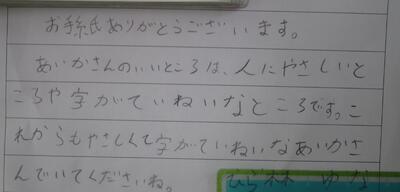 お手紙ありがとうございます。
あいかさんのいいところは、人にやさしいと
ころや字がていねいなところです。こ
れからもやさしくて字がていねいなあいかさ
んでいてくださいね。 ひら林 ゆな